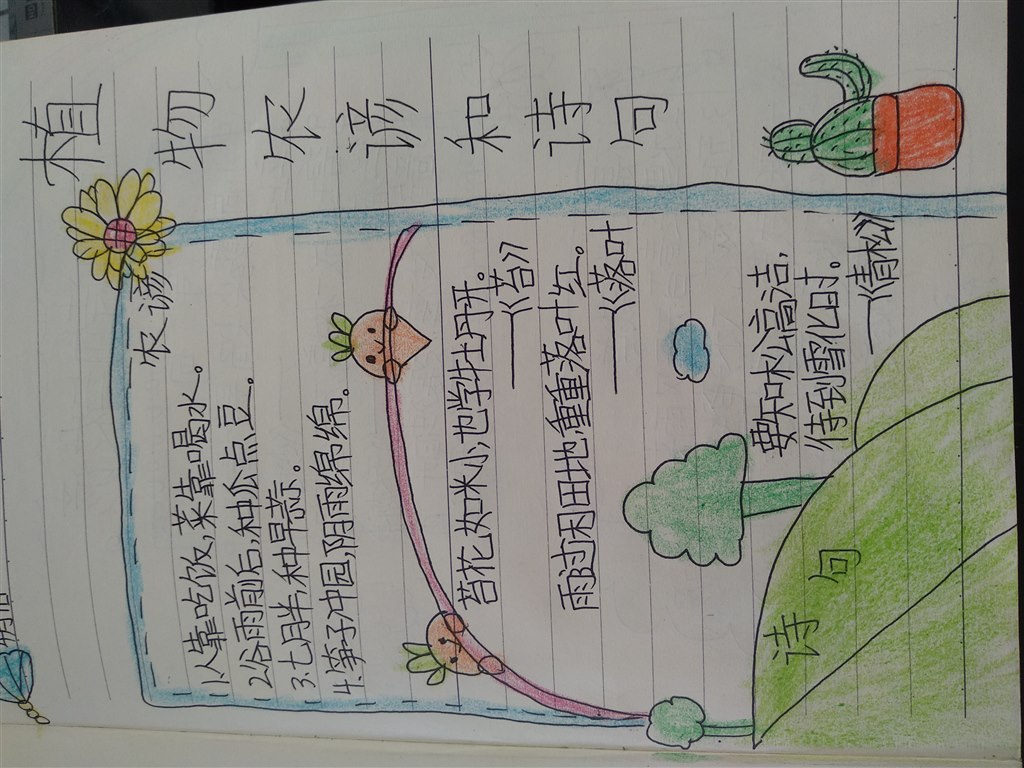 植物农谚和诗句
农谚
1.人靠吃饭,菜靠喝水。
2.谷雨前后,种瓜点豆。
3.七月半,种早蒜。
4.笋子冲园,阴雨绵绵。
苔花如米小,也学牡丹开。
——《苔》
雨过闲田地,重重落叶红。
——《落叶
要知松高洁,
待到雪化时。
——《青松》
诗句